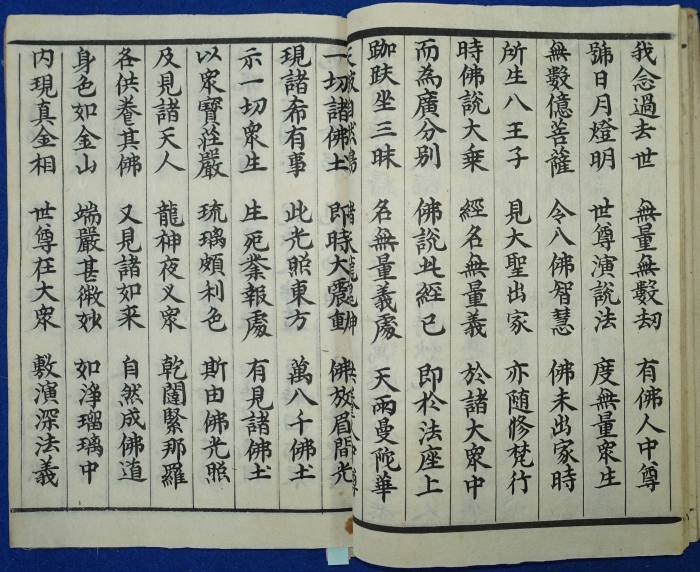 我念過去世 無量無數劫 有佛人中尊
號日月燈明 世尊演說法 度無量眾生
無數億菩薩 令入佛智慧 佛未出家時
所生八王子 見大聖出家 亦随修梵行
時佛說大乘 經名無量義 於諸大眾中
而為廣分別 佛說此經已 即於法座上
跏趺坐三昧 名無量義處 天雨曼陀華
一切諸佛土 即時大震動 佛放眉間光
現諸希有事 此光照東方 萬八千佛土
示一切眾生 生死業報處 有見諸佛土
以眾寶莊嚴 琉璃頗利色 斯由佛光照
及見諸天人 龍神夜叉眾 乾闥緊那羅
各供養其佛 又見諸如来 自然成佛道
身色如金山 端嚴甚微妙 如淨瑠璃中
内現真金相 世尊在大眾 敷演深法義